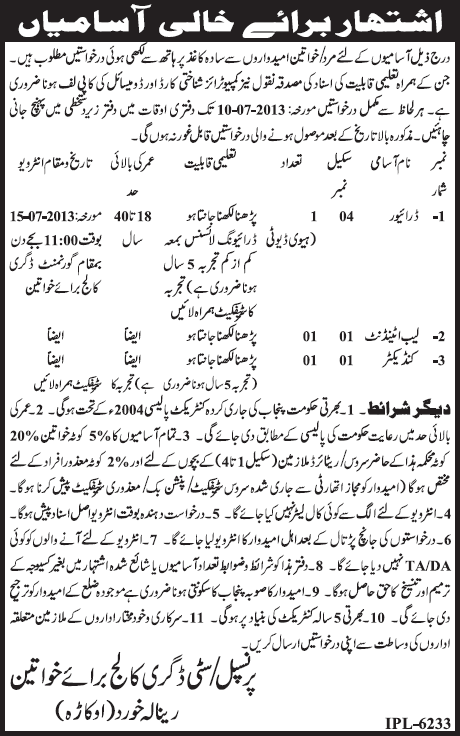 اشتہار برائے خالی آسامیاں
درج ذیل آسامیوں کے لئے مرد/خواتین امیدواروں سے سادہ کاغذ پر ہاتھ سے لکھی ہوئی درخواستیں مطلوب ہیں۔
جن کے ہمراہ تعلیمی قابلیت کی اسناد کی مصدقہ نقول نیز کمپیوٹرائز شناختی کارڈ اور ڈومیسائل کی کاپی لف ہونا ضروری
ہے۔ ہر لحاظ سے مکمل درخواستیں مورخہ: 10-07-2013 تک دفتری اوقات میں دفتر زیر دستخطی میں پہنچ جانی
چاہئیں۔ مذکورہ بالا تاریخ کے بعد موصول ہونے والی درخواستیں قابل غور نہ ہوں گی۔
نمبر شمار نام آسامی سکیل نمبر تعداد تعلیمی قابلیت عمر کی بالائی حد تاریخ و مقام انٹرویو
1- ڈرائیور 04 1 پڑھنا لکھنا جانتا ہو 18 تا 40 مورخہ: 15-07-2013
(ہیوی ڈیوٹی) ڈرائیونگ لائسنس بمعہ سال بوقت 11:00 بجے دن
کم از کم تجربہ 5 سال بمقام گورنمنٹ ڈگری
ہونا ضروری ہے) تجربہ کالج برائے خواتین
کا سرٹیفکیٹ ہمراہ لائیں
2- لیب اٹینڈنٹ 01 01 پڑھنا لکھنا جانتا ہو ایضاً ایضاً
3- کنڈیکٹر 01 01 پڑھنا لکھنا جانتا ہو ایضاً ایضاً
(تجربہ 5 سال ہونا ضروری ہے) تجربہ کا سرٹیفکیٹ ہمراہ لائیں
دیگر شرائط۔ 1- بھرتی حکومت پنجاب کی جاری کردہ کنٹریکٹ پالیسی 2004ء کے تحت ہوگی۔ 2- عمر کی
بالائی حد میں رعایت حکومت کی پالیسی کے مطابق دی جائے گی۔ 3- تمام آسامیوں کا 5% کوٹہ خواتین 20%
کوٹہ محکمہ ہذا کے حاضر سروس/ریٹائرڈ ملازمین (سکیل 1 تا 4) کے بچوں کے لئے اور 2% کوٹہ معذور افراد کے لئے
مختص ہوگا (امیدوار کو مجاز اتھارٹی سے جاری شدہ سروس سرٹیفکیٹ/پنشن بک/معذوری سرٹیفکیٹ پیش کرنا ہوگا۔
4- انٹرویو کے لئے الگ سے کوئی کال لیٹر نہیں کیا جائے گا۔ 5- درخواست دہندہ بوقت انٹرویو اصل اسناد پیش ہوگا۔
6- درخواستوں کی جانچ پڑتال کے بعد اہل امیدوار کا انٹرویو لیا جائے گا۔ 7- انٹرویو کے لئے آنے والوں کو کوئی
TA/DA نہیں دیا جائے گا۔ 8- دفتر ہذا کو شرائط و ضوابط تعداد آسامیوں یا شائع شدہ اشتہار میں بغیر کسی وجہ کے
ترمیم اور تنسیخ کا حق حاصل ہوگا۔ 9- امیدوار کا صوبہ پنجاب کا سکونتی ہونا ضروری ہے موجودہ ضلع کے امیدوار کو ترجیح
دی جائے گی۔ 10- بھرتی 5 سالہ کنٹریکٹ کی بنیاد پر ہوگی۔ 11- سرکاری و خود مختار اداروں کے ملازمین متعلقہ
اداروں کی وساطت سے اپنی درخواستیں ارسال کریں۔
پرنسپل/سٹی ڈگری کالج برائے خواتین
رینالہ خورد (اوکاڑہ)
IPL-6233